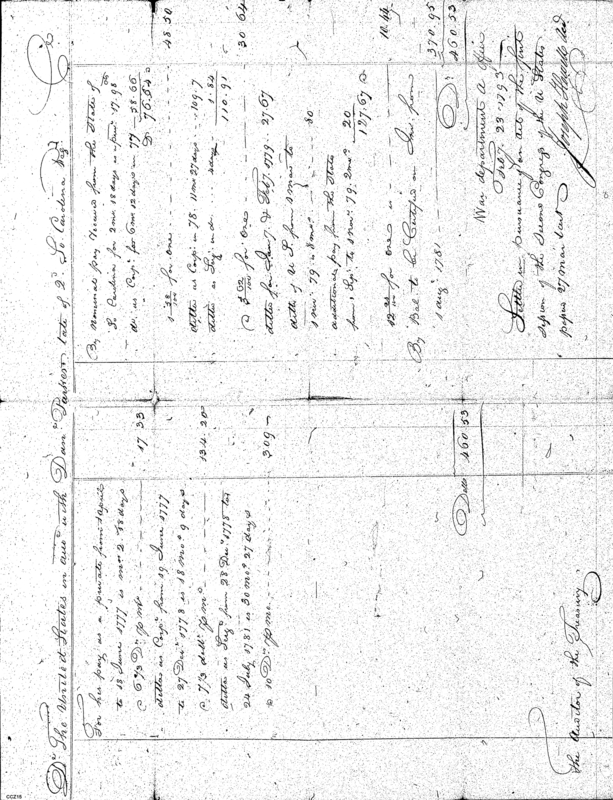 Dr The United States in accot with Danl Parker late of 2d So Carolina Regt
For his pay as a private from 1 April
to 18 June 1777 is mos 2.18 days
@ 6 2/3 Drs p mo. - - - - - 17 33
ditto as Corpl from 19 June 1777
to 27 Decr 1778 is 18 mos 9 days
@ 7 1/3 dolls p mo - - - - 134.20
ditto as Sergt from 28 Decr 1778 to
24 July 1781 is 30 mos 27 days
@ 10 Drs p mo. - - - - 309 -
Dolls 460 53
The Auditor of the Treasury
By nominal pay received from the State of
So Carolina for 2 mo 18 days as priv. 17.98
do. as Corpl for 6 mo 12 days in 77 58.66
D 76.64 @
1 58/100 for one - - - - 48 50
ditto as Corpl in 78. 11 mo 27 days 109.7
ditto as Sergt in do. days 1.84
110.91
@ 3 62/100 for one - - - - 30 64
ditto for Jany & Feby 1779. 27 67
ditto of U S. from 1 Mar to
1 Novr 79 is 8 mos 80
additional pay from the State
from 1 Septr to 1 Novr 79. 2 mos 20
127.67 @
12 for one is - - - - 10.44
By Bal to be Certified on Int from
1 Augt 1781 - - - - 370.95
D. 460.53
War department a office
Feby 23 1793
Settled in pursuance of an Act of the first
session of the Second Congress of the U States
passed 27 Mar last
Joseph Howell
CCZ15